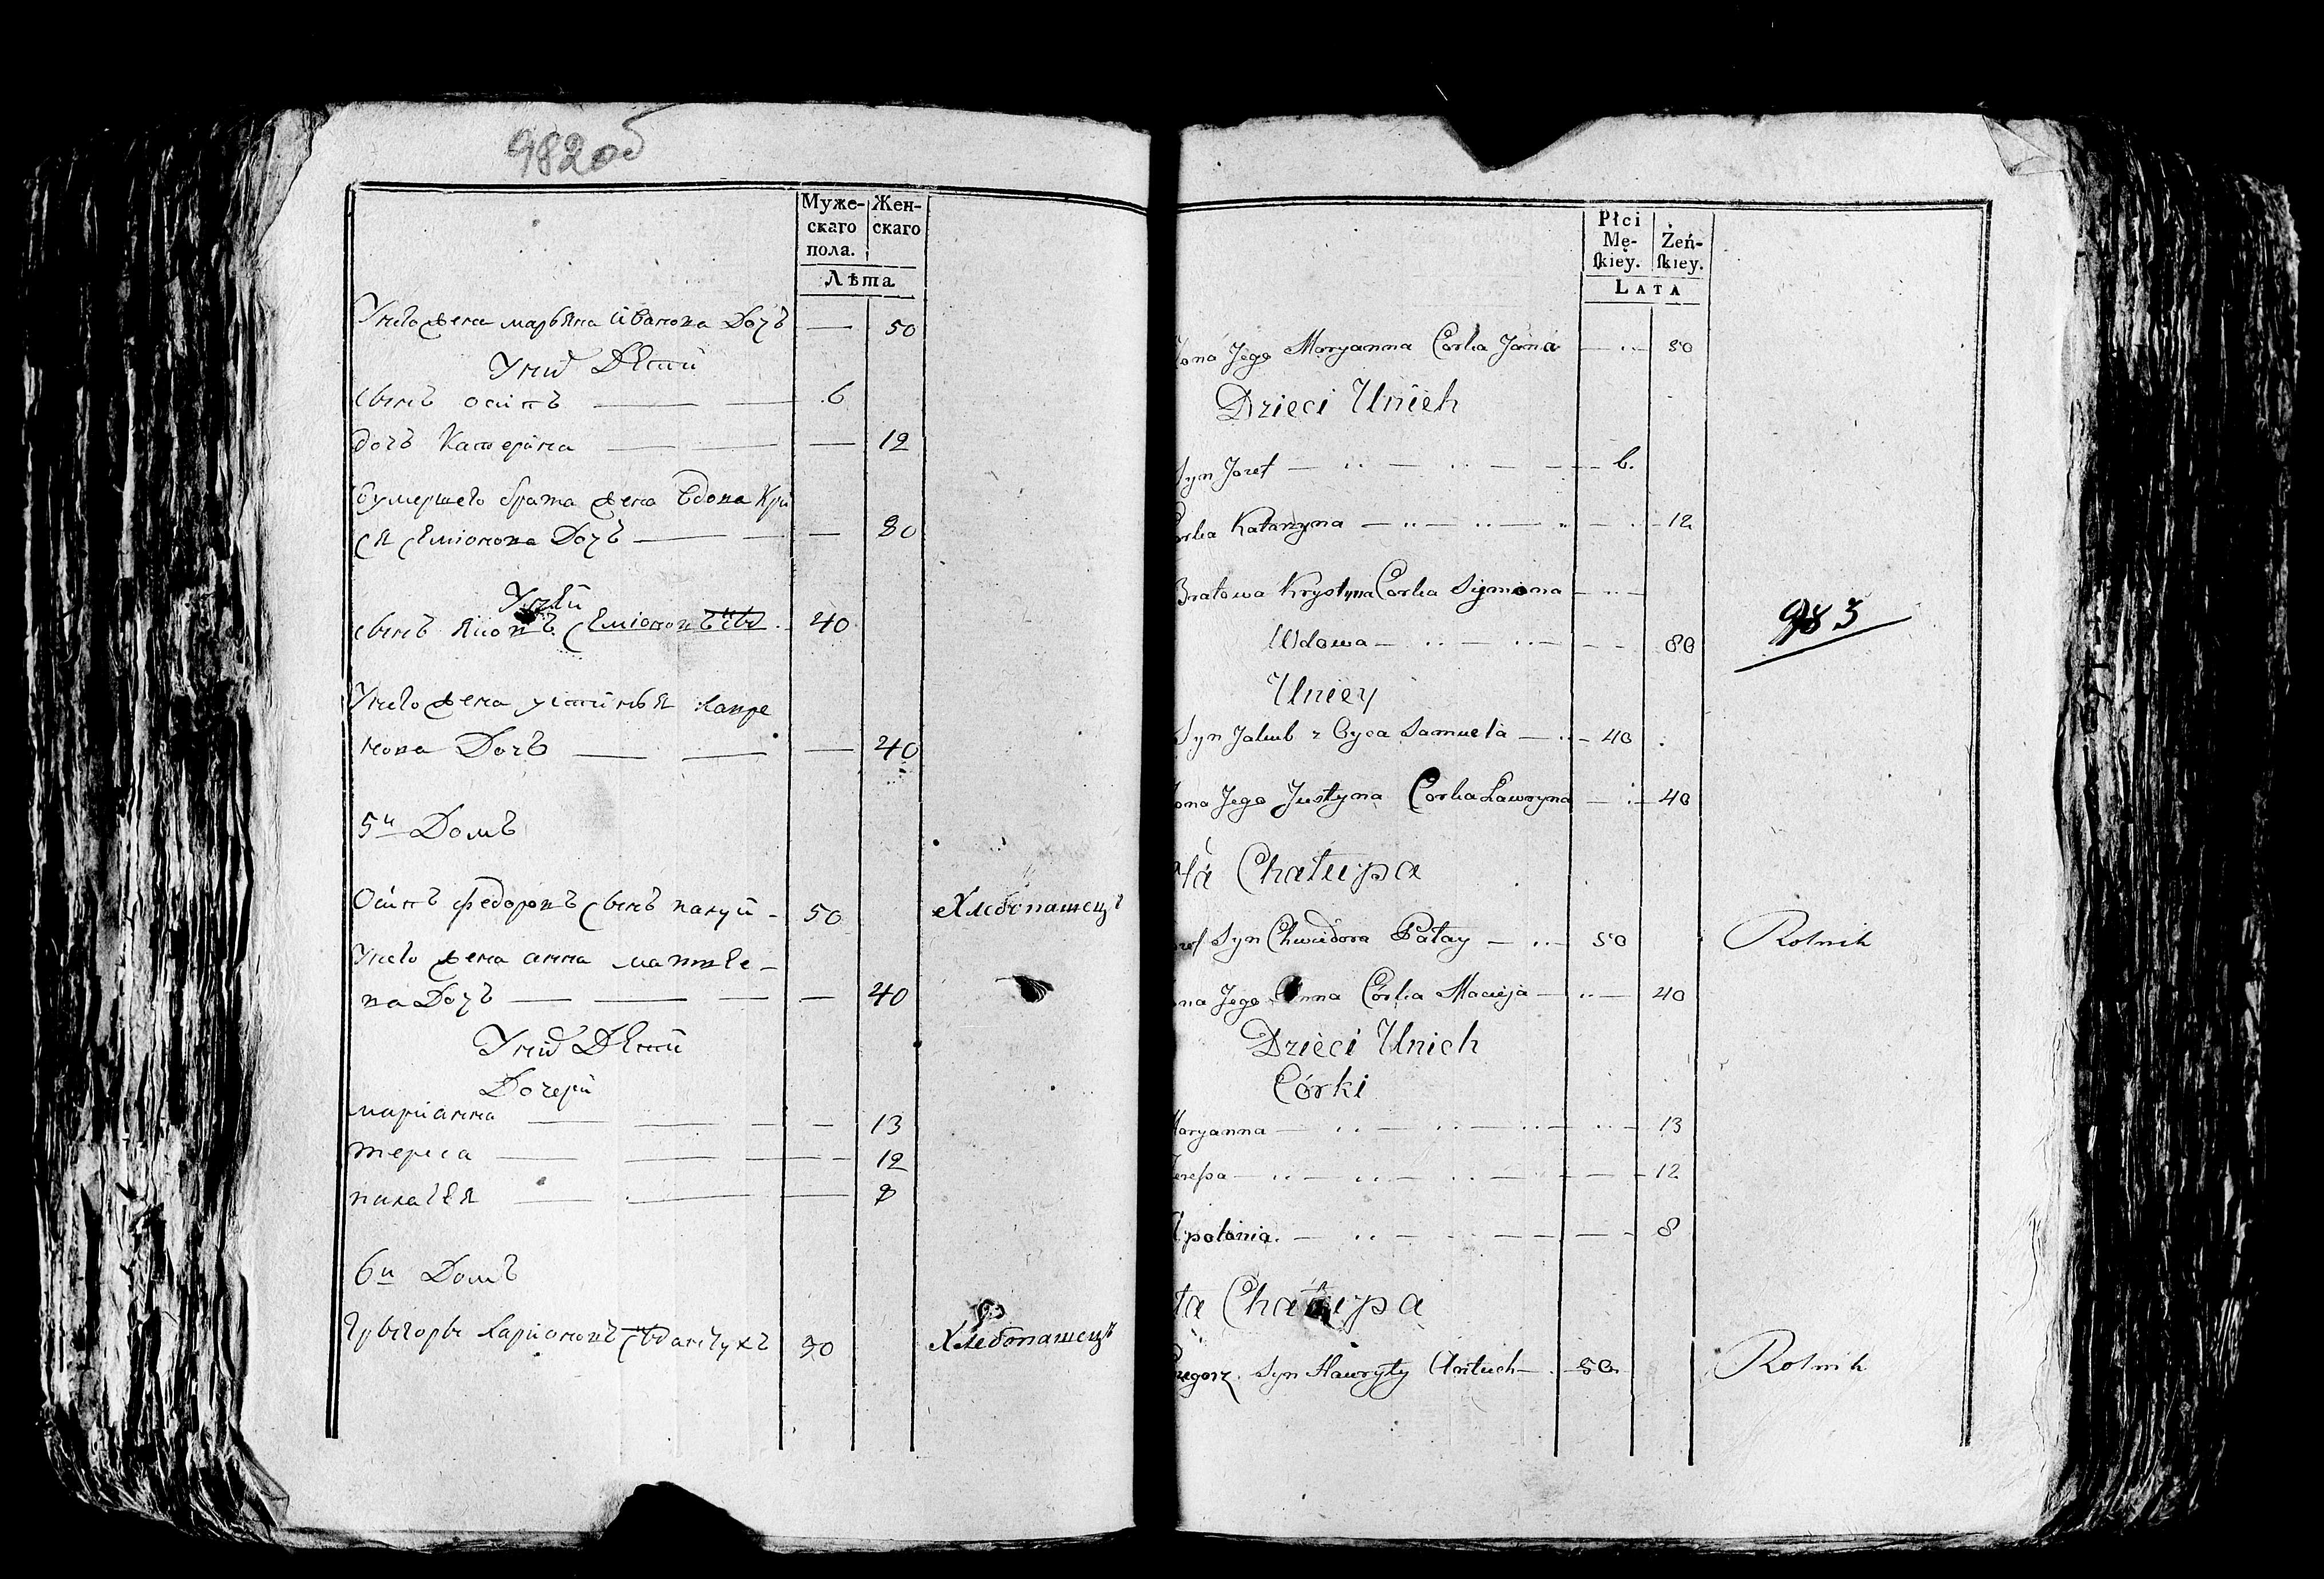 982об
Муже-
скаго
пола.
Жен-
скаго
Лѣта
Унего жена марьяна иванова Дочъ — 50
Уних Дети
сынъ осипъ — 6
дочъ Катерина — 12
умершего брата жена вдова Кри
ся Семіонова Дочъ — 80
Уней
сынъ яковъ Семіоновъ 40
Унего жена устинья лавре
нова Дочъ — 40
5й Домъ
Осипъ федоровъ сынъ 50 Хлебопашецъ
Унего жена анна матве-
ва Дочъ — 40
Уних Дети
Дочери
марианна — 13
тереса — 12
8
6й Домъ
50 Хлебопашецъ
Płci
Mę-
ſkiey.
Żeń-
ſkiey.
LATA
Żona Jego Maryanna Corka Jana — 50
Dzieci Unich
Syn Jozef — 6.
Corka Katarzyna — 12
Bratowa Krystyna Corka Symona —
Wdowa — 80
983
Uniey
Syn Jakub z Oyca Samuela — 40
Żona Jego Justyna Corka Lawryna — 40
5ta Chałupa
Jozef Syn Chwiedora Pałay — 50 Rolnik
Żona Jego Anna Córka Macieja — 40
Dzieci Unich
Córki
Maryanna — 13
Tereſsa — 12
Apolonia. — 8
6ta Chałupa
Gregorz Syn Hawryły Antuch — 50 Rolnik